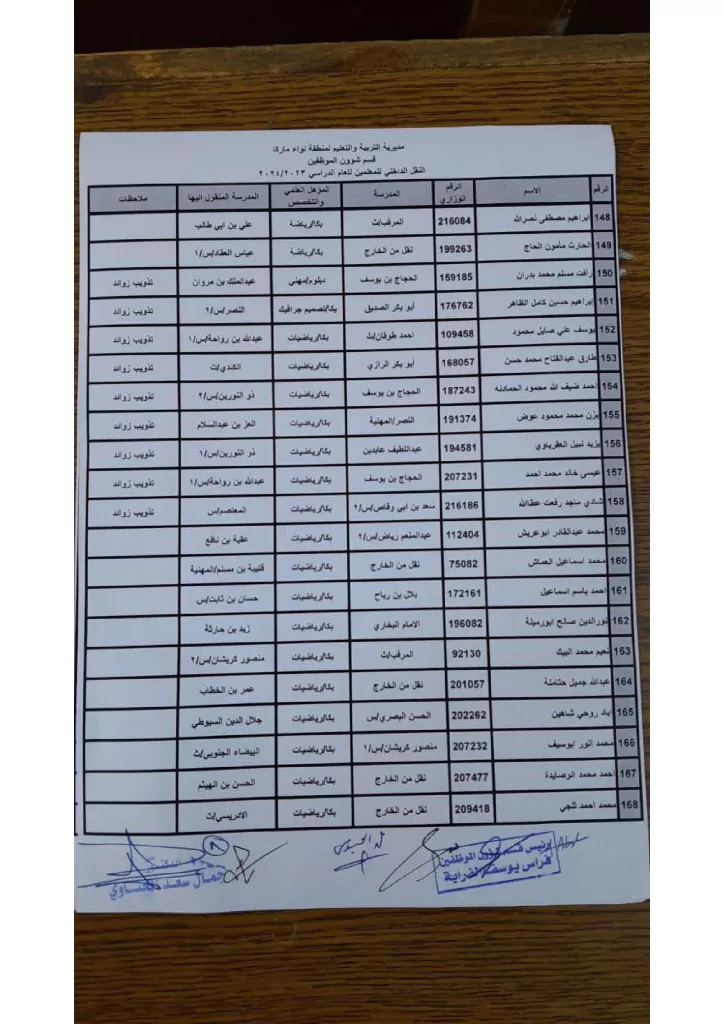 مديرية التربية والتعليم لمنطقة لواء ماركا
قسم شؤون الموظفين
النقل الداخلي للمعلمين للعام الدراسي ٢٠٢٤/٢٠٢٣
الرقم الاسم الرقم الوزاري المدرسة المؤهل العلمي والتخصص المدرسة المنقول اليها ملاحظات
148 ابراهيم مصطفى نصرالله 216084 المرقب/ث بكا/رياضة علي بن ابي طالب
149 الحارث مأمون الحاج 199263 نقل من الخارج بكا/رياضة عباس العقاد/س/١
150 رأفت مسلم محمد بدران 159185 الحجاج بن يوسف دبلوم/مهني عبدالملك بن مروان تذويب زوائد
151 ابراهيم حسين كامل الظاهر 176762 أبو بكر الصديق بكا/تصميم جرافيك النصر/س/٢ تذويب زوائد
152 يوسف علي صايل محمود 109458 احمد طوقان/ث بكا/رياضيات عبدالله بن رواحة/س/١ تذويب زوائد
153 طارق عبدالفتاح محمد حسن 168057 أبو بكر الرازي بكا/رياضيات الكندي/ث تذويب زوائد
154 احمد ضيف الله محمود الحمادنه 187243 الحجاج بن يوسف بكا/رياضيات ذو النورين/س/٢ تذويب زوائد
155 يزن محمد محمود عوض 191374 النصر/المهنية بكا/رياضيات العز بن عبدالسلام تذويب زوائد
156 يزيد نبيل العقرباوي 194581 عبداللطيف عابدين بكا/رياضيات ذو النورين/س/١ تذويب زوائد
157 عيسى خالد محمد احمد 207231 الحجاج بن يوسف بكا/رياضيات عبدالله بن رواحة/س/١ تذويب زوائد
158 شادي منجد رفعت عطاالله 216186 سعد بن ابي وقاص/س/٢ بكا/رياضيات المعتصم/س تذويب زوائد
159 محمد عبدالقادر ابوعريش 112404 عبدالمنعم رياض/س/٢ بكا/رياضيات عقبة بن نافع
160 محمد اسماعيل العماش 75082 نقل من الخارج بكا/رياضيات قتيبة بن مسلم/المهنية
161 احمد باسم اسماعيل 172161 بلال بن رباح بكا/رياضيات حسان بن ثابت/س
162 نورالدين صالح ابورميلة 196082 الامام البخاري بكا/رياضيات زيد بن حارثة
163 نعيم محمد البيك 92130 المرقب/ث بكا/رياضيات منصور كريشان/س/٢
164 عبدالله جميل حتاملة 201057 نقل من الخارج بكا/رياضيات عمر بن الخطاب
165 اياد روحي شاهين 202262 الحسن البصري/س بكا/رياضيات جلال الدين السيوطي
166 محمد انور ابوسيف 207232 منصور كريشان/س/١ بكا/رياضيات البيضاء الجنوبي/ث
167 احمد محمد الوصايدة 207477 نقل من الخارج بكا/رياضيات الحسن بن الهيثم
168 محمد احمد ثلجي 209418 نقل من الخارج بكا/رياضيات الادريسي/ث
رئيس قسم شؤون الموظفين
فراس يوسف الفراية
جمال سعد